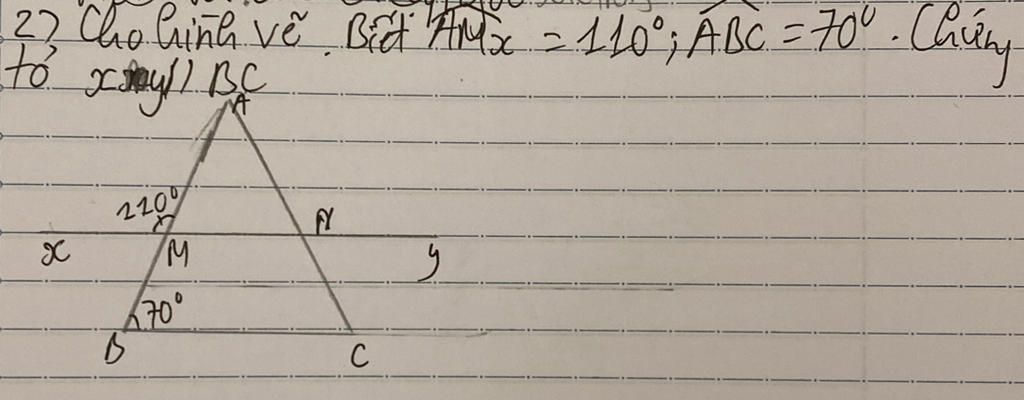 2) Cho hình vẽ. Biết AMx = 110°; ABC = 70°. Chứng
tỏ xy // BC
A
110°
N
x
M
y
70°
B
C